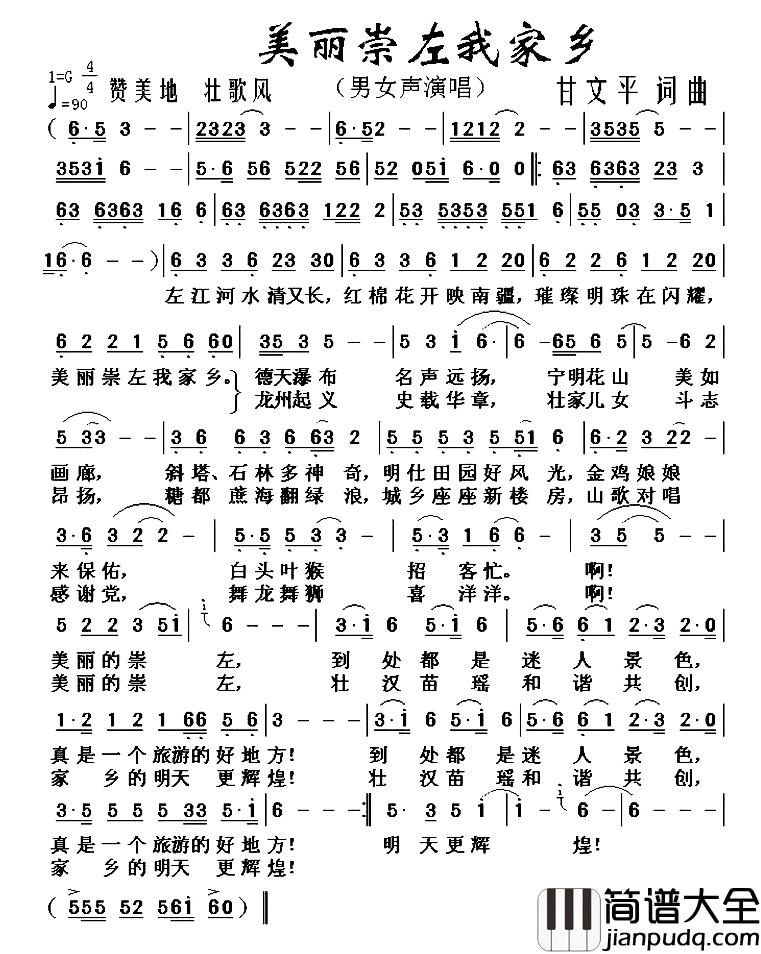 美丽崇左我家乡
1=G 4/4
♩=90 赞美地 壮歌风 （男女声演唱） 甘文平 词曲
( 6·5 3 - - | 2323 3 - - | 6·52 - - | 1212 2 - - | 3535 5 - - |
3531 6 - - | 5·6 56 522 56 | 52 051 6·0 0 ‖: 63 6363 23 3 |
63 6363 16 6 | 63 6363 122 2 | 53 5353 551 6 | 55 03 3·5 1 |
16·6 - - ) | 6 3 3 6 23 30 | 6 3 3 6 1 2 20 | 6 2 2 6 1 2 20 |
左江河水清又长，红棉花开映南疆，璀璨明珠在闪耀，
6 2 2 1 5 6 60 | 35 5 3 - - | 5 3 1 6· | 6 - 65 6 5 | 5 - 6 2 |
美丽崇左我家乡。德天瀑布 名声远扬，宁明花山 美如
龙州起义 史载华章，壮家儿女 斗志
5 33 - - | 3 6 6 3 6 63 2 | 5 5 5 5 3 5 51 6 | 6·2 3 22 - |
画廊，斜塔、石林多神奇，明仕田园好风光，金鸡娘娘
昂扬，糖都 蔗海翻绿浪，城乡座座新楼房，山歌对唱
3·6 3 2 2 - | 5·5 5 3 3 - | 5·3 1 6 6 - | 3 5 5 - - |
来保佑，白头叶猴 招客忙。啊！
感谢党，舞龙舞狮 喜洋洋。啊！
5 2 2 3 51 | 6 - - - | 3·1 6 5·1 6 | 5·6 6 1 2·3 2·0 |
美丽的崇 左，到处都是迷人景色，
美丽的崇 左，壮汉苗瑶和谐共创，
1·2 1 2 1 66 5 6 | 3 - - - | 3·1 6 5·1 6 | 5·6 6 1 2·3 2·0 |
真是一个旅游的好地方！到处都是迷人景色，
家乡的明天更辉煌！壮汉苗瑶和谐共创，
3·5 5 5 5 33 5·1 | 6 - - - :‖ 5· 3 5 1 | 1 - - 6 | 6 - - - |
真是一个旅游的好地方！明天更辉 煌！
家乡的明天更辉煌！
( 555 52 561 60 ) ‖
简谱大全
jianpudq.com